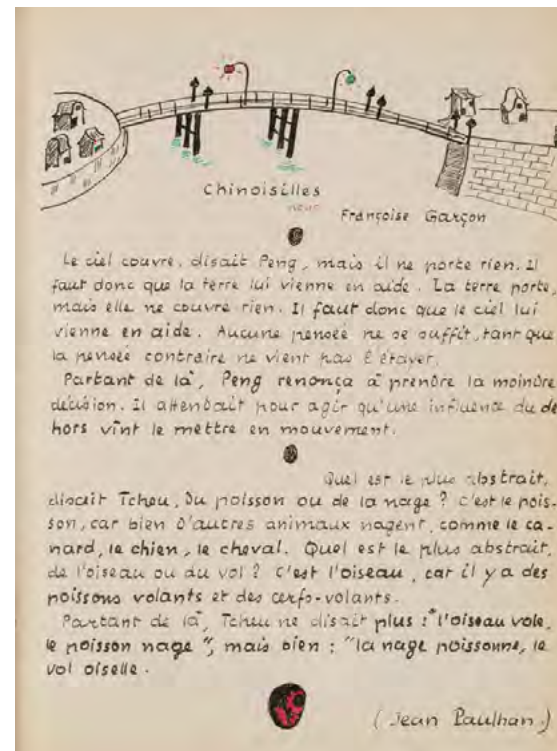 Chinoisilles
pour
Françoise Garçon
Le ciel couvre, disait Peng, mais il ne porte rien. Il
faut donc que la terre lui vienne en aide. La terre porte,
mais elle ne couvre rien. Il faut donc que le ciel lui
vienne en aide. Aucune pensée ne se suffit, tant que
la pensée contraire ne vient pas l'étayer.
Partant de là, Peng renonça à prendre la moindre
décision. Il attendait pour agir qu'une influence du de
hors vînt le mettre en mouvement.
Quel est le plus abstrait,
disait Tcheu, Du poisson ou de la nage ? C'est le pois-
son, car bien D'autres animaux nagent, comme le ca-
nard, le chien, le cheval. Quel est le plus abstrait,
de l'oiseau ou du vol ? C'est l'oiseau, car il y a des
poissons volants et des cerfs-volants.
Partant de là, Tcheu ne disait plus : "l'oiseau vole,
le poisson nage", mais bien : "la nage poissonne, le
vol oiselle.
(Jean Paulhan.)